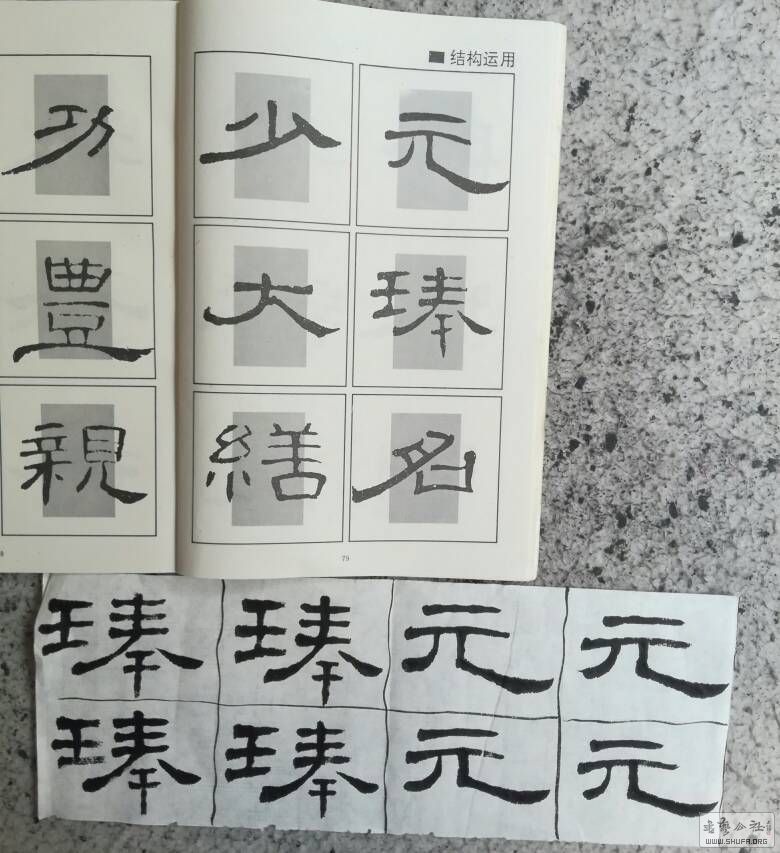 ■ 结构运用
功 少 元
豊 大 琫
親 繕 名
79
琫 琫 元 元
琫 琫 元 元
书艺公社
WWW.SHUFA.ORG